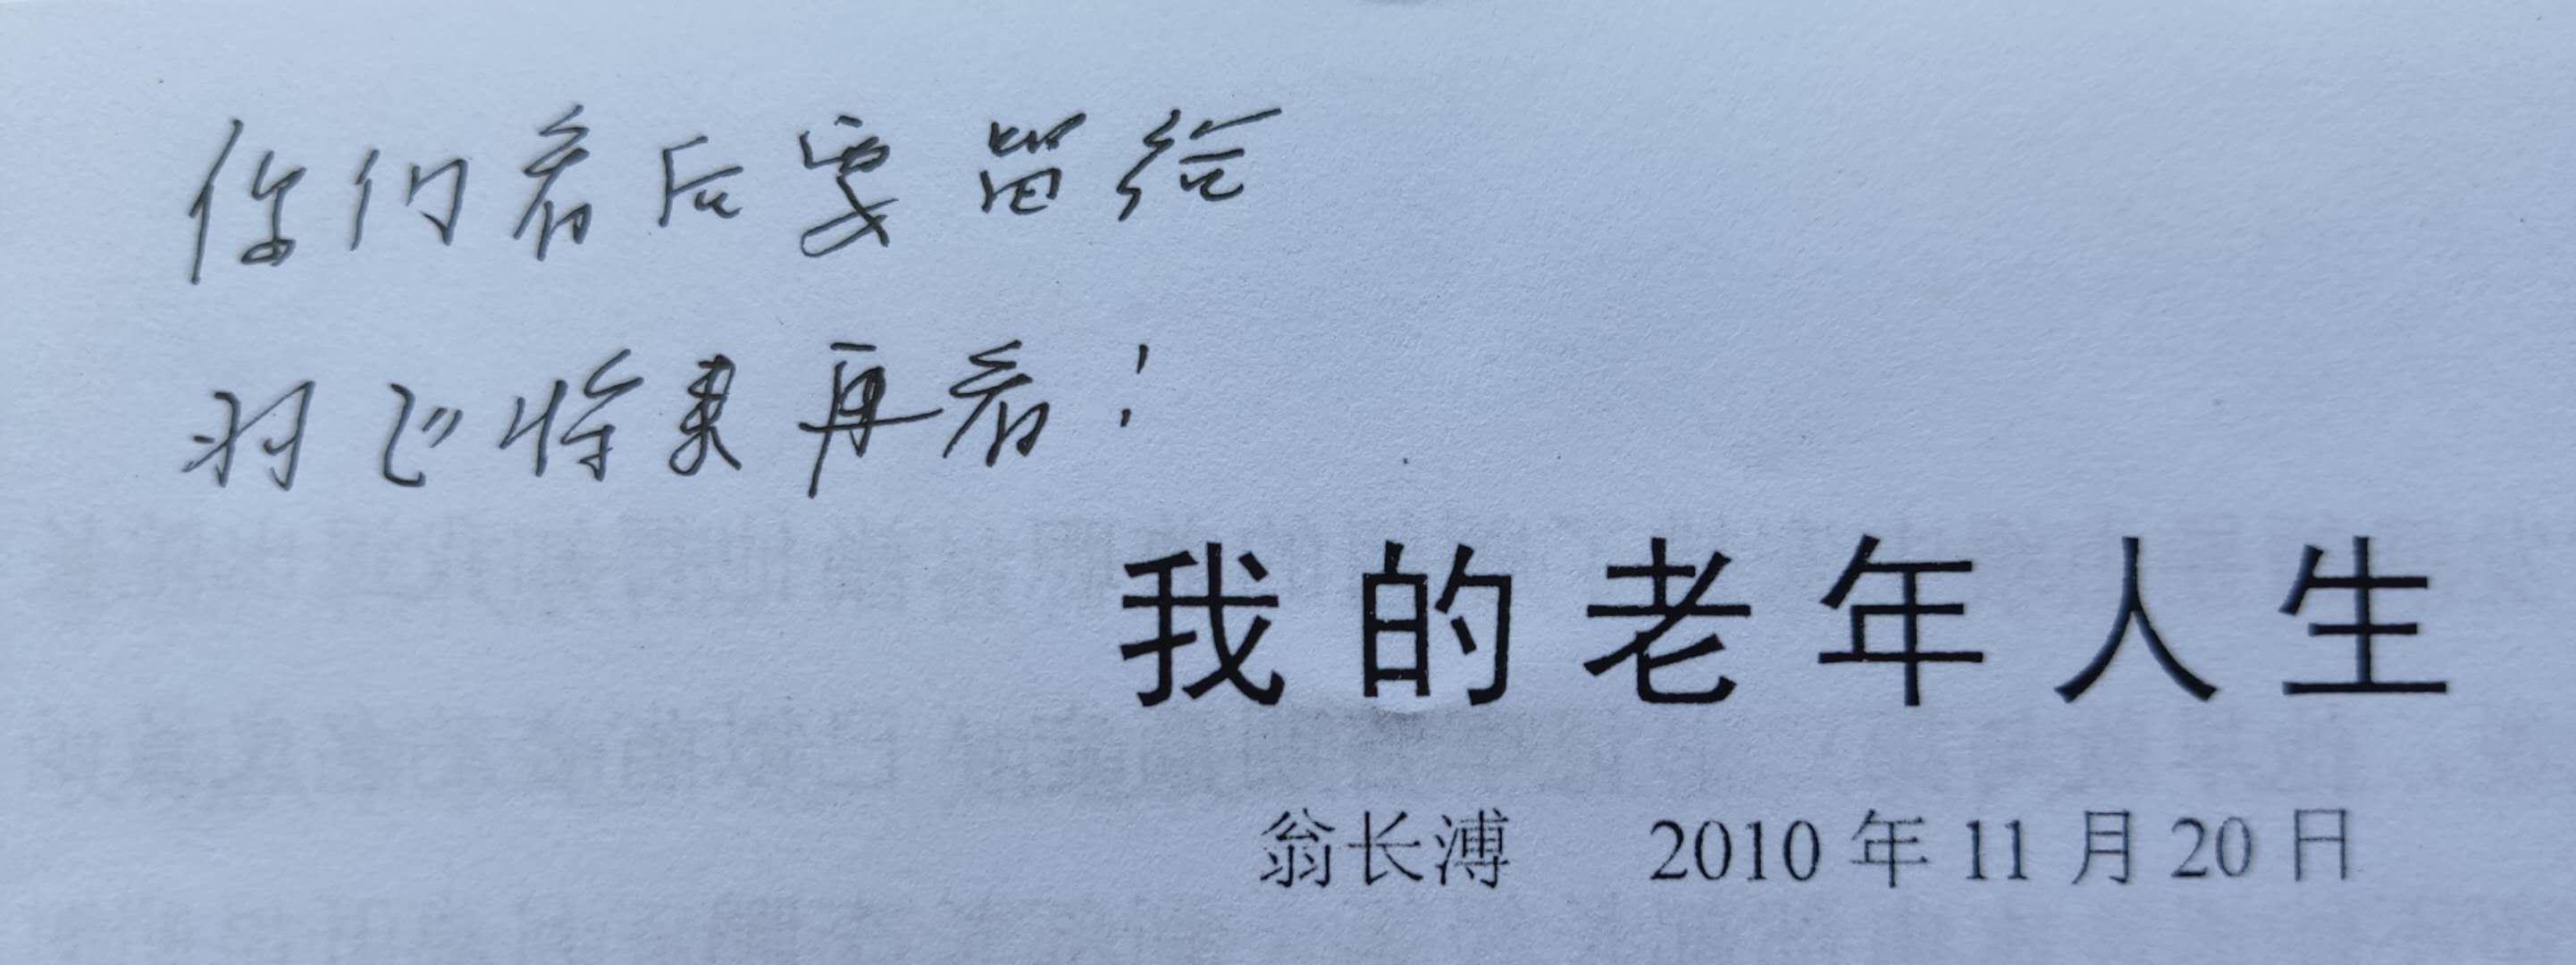 你们看后要留给
羽飞将来再看！
我的老年人生
翁长溥 2010年11月20日